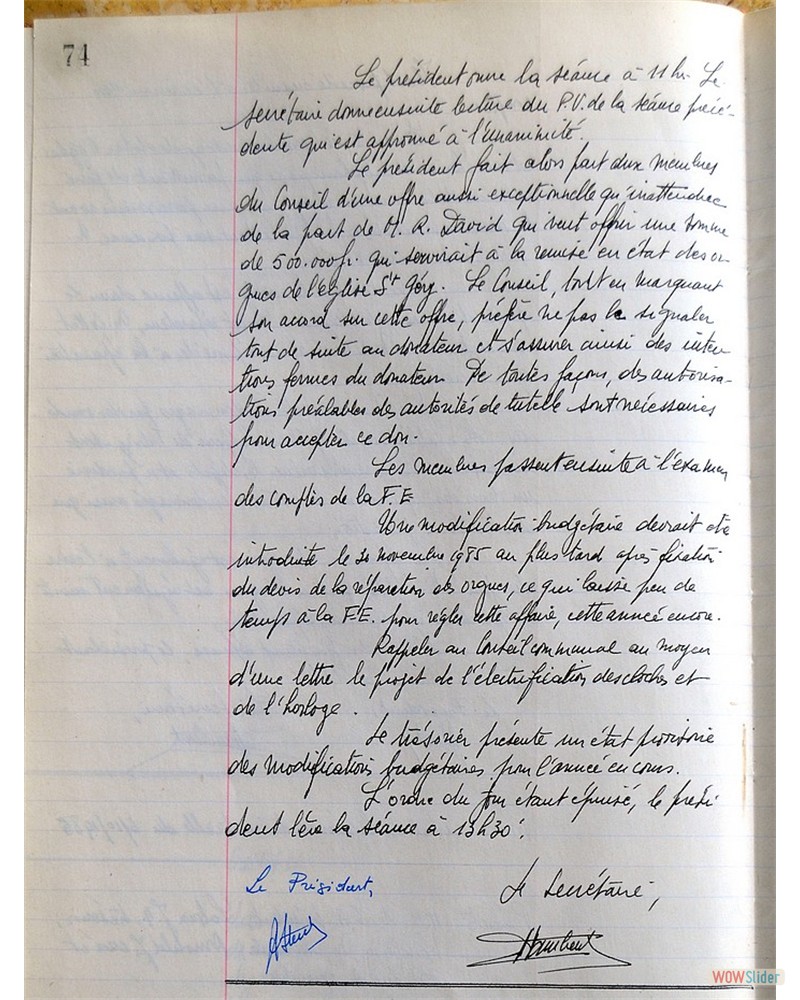 74
Le président ouvre la séance à 11 hr. Le
secrétaire donne ensuite lecture du P.V. de la séance précé-
dente qui est approuvé à l'unanimité.
Le président fait alors part aux membres
du Conseil d'une offre aussi exceptionnelle qu'inattendue
de la part de M. R. David qui veut offrir une somme
de 500.000 fr. qui servirait à la remise en état des or-
gues de l'église St Géry. Le Conseil, tout en marquant
son accord sur cette offre, préfère ne pas le signaler
tout de suite au donateur et s'assurer ainsi des inten-
tions fermes du donateur. De toutes façons, des autorisa-
tions préalables des autorités de tutelle sont nécessaires
pour accepter ce don.
Les membres passent ensuite à l'examen
des comptes de la F.E
Une modification budgétaire devrait être
introduite le novembre 1985 au plus tard après fixation
du devis de la réparation des orgues, ce qui laisse peu de
temps à la F.E. pour régler cette affaire, cette année encore.
Rappeler au Conseil communal au moyen
d'une lettre le projet de l'électrification des cloches et
de l'horloge.
Le trésorier présente un état provisoire
des modifications budgétaires pour l'année en cours.
L'ordre du jour étant épuisé, le prési
dent lève la séance à 13h30'.
Le Président,
Le secrétaire,
WOWSlider